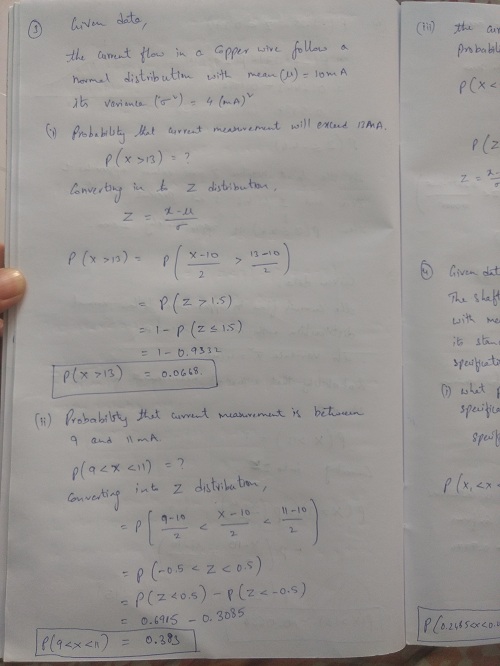 ③ Given data,
the current flow in a Copper wire follow a
normal distribution with mean (μ) = 10mA
its variance (σ²) = 4 (mA)²
(i) Probability that current measurement will exceed 13mA.
P(x >13) = ?
Converting in to Z distribution.
Z = (x-μ)/σ
P(x >13) = P( (x-10)/2 > (13-10)/2 )
= P(Z > 1.5)
= 1 - P(Z ≤ 1.5)
= 1 - 0.9332
P(x >13) = 0.0668.
(ii) Probability that current measurement is between
9 and 11 mA.
P(9 < x < 11) = ?
Converting into Z distribution,
= P( (9-10)/2 < (x-10)/2 < (11-10)/2 )
= P(-0.5 < Z < 0.5)
= P(Z < 0.5) - P(Z < -0.5)
= 0.6915 - 0.3085
P(9 < x < 11) = 0.383
(iii) the
P(x <
P(Z
Z =
④ Given data
The shaft
with
its
(i) what
P(x₁ < x <